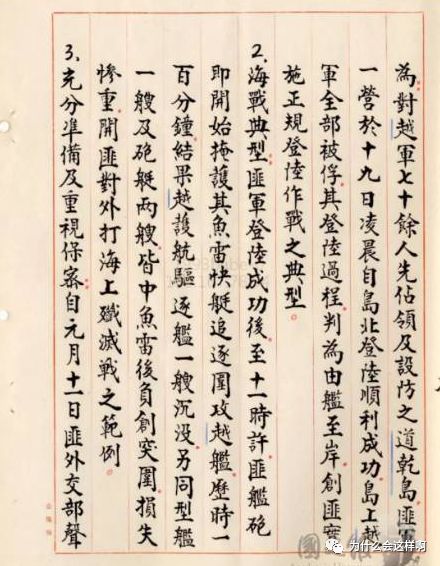 為對越軍七十餘人先佔領及設防之道乾島匪
一營於十九日凌晨自島北登陸順利成功島上越
軍全部被俘其登陸過程判為由艦至岸創匪實
施正規登陸作戰之典型。
2.海戰典型匪軍登陸成功後至十一時許匪艦砲
即開始掩護其魚雷快艇追逐圍攻越艦歷時一
百分鐘結果越護航驅逐艦一艘沉没另同型艦
一艘及砲艇兩艘皆中魚雷後負創突圍損失
慘重開匪對外打海上殲滅戰之範例。
3.充分準備及重視保密自元月十一日匪外交部聲
为什么会这样啊